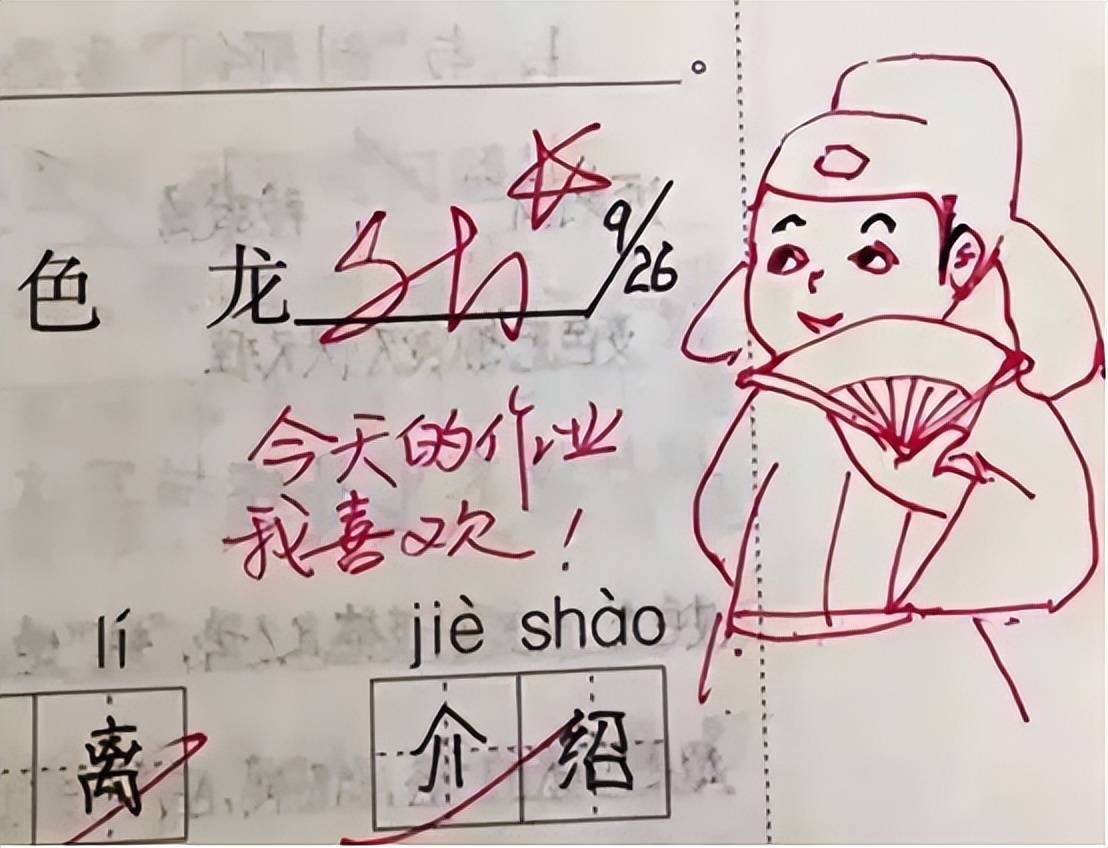 。
9/26
色 龙
今天的作业
我喜欢！
lí jiè shào
离 介 绍